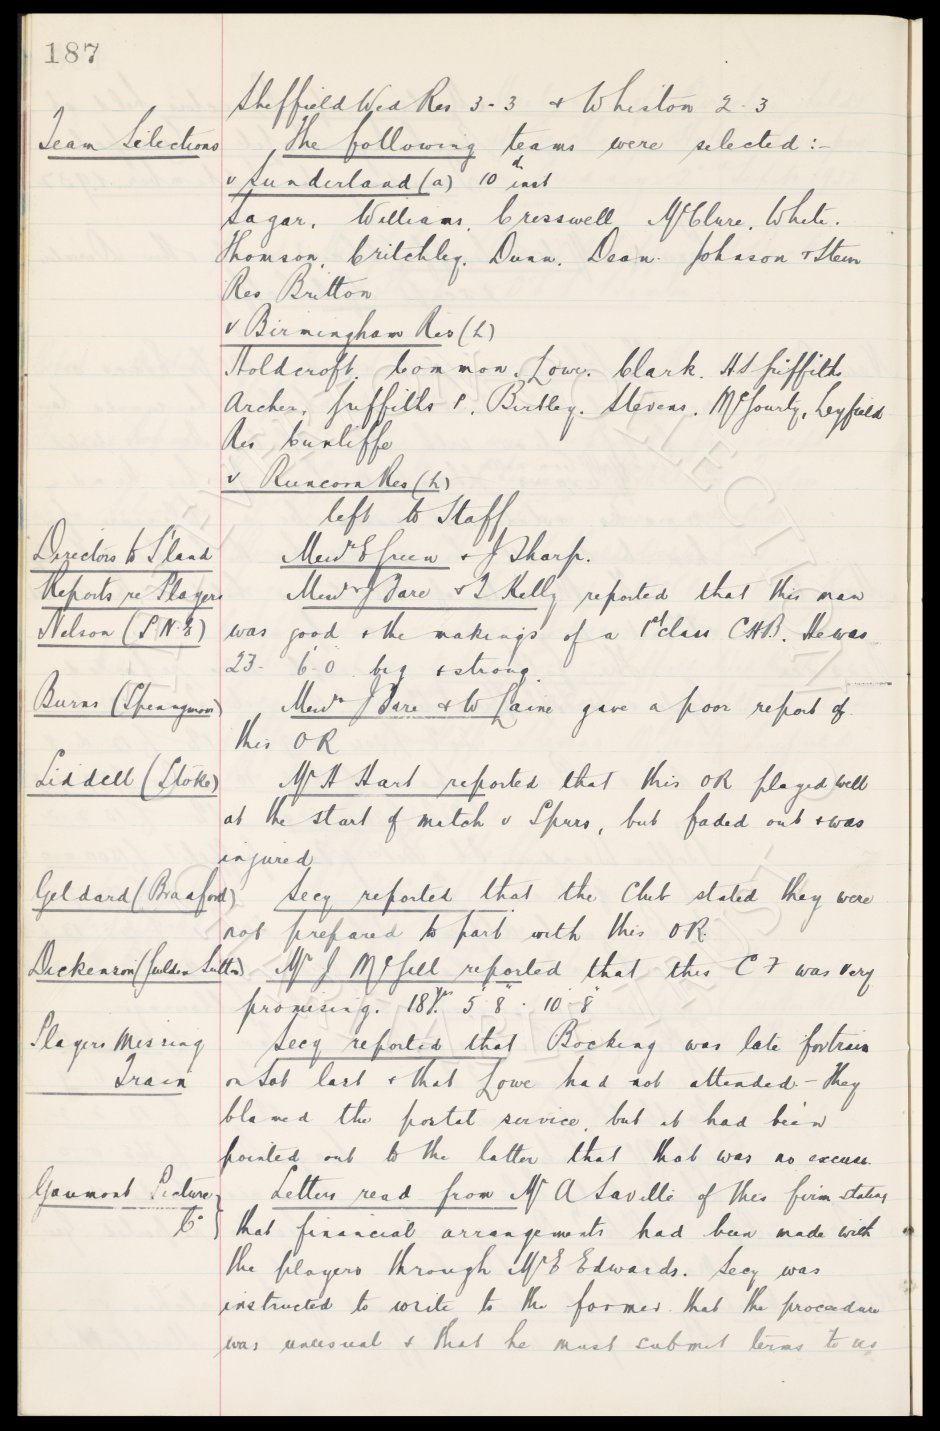 187
Sheffield Wed Res 3-3 & Whiston 2-3
Team Selections The following teams were selected :-
v Sunderland (a) 10th inst
Sagar, Williams, Cresswell, McClure, White.
Thomson, Critchley, Dunn, Dean, Johnson & Stein
Res Britton
v Birmingham Res (h)
Holdcroft, Common, Lowe, Clark. H S Griffiths
Archer, Griffiths P, Birtley, Stevens, McGourty, Leyfield
Res Cunliffe
v Runcorn Res (h)
left to Staff
Directors to S'land Messrs E Green & J Sharp.
Reports re Players Messrs J Fare & T Kelly reported that this man
Nelson (P.N.E) was good & the makings of a 1st class C.H.B. He was
23. 6'.0 big & strong.
Burns (Spennymoor) Messrs J Fare & W Laine gave a poor report of
this OR
Liddell (Stoke) Mr H Hart reported that this OR played well
at the start of match v Spurs, but faded out & was
injured
Geldard (Bradford) Secy reported that the Club stated they were
not prepared to part with this OR.
Dickenson (Guilden Sutton) Mr J McGill reported that this C F was very
promising. 18 yrs. 5' 8" . 10-8
Players Missing Secy reported that Bocking was late for train
Train on Sat last & that Lowe had not attended - They
blamed the postal service, but it had been
pointed out to the latter that that was no excuse.
Gaumont Picture Letters read from Mr A Saville of this firm stating
Co that financial arrangements had been made with
the players through Mr E Edwards. Secy was
instructed to write to the former that the proceedure
was unusual & that he must submit terms to us